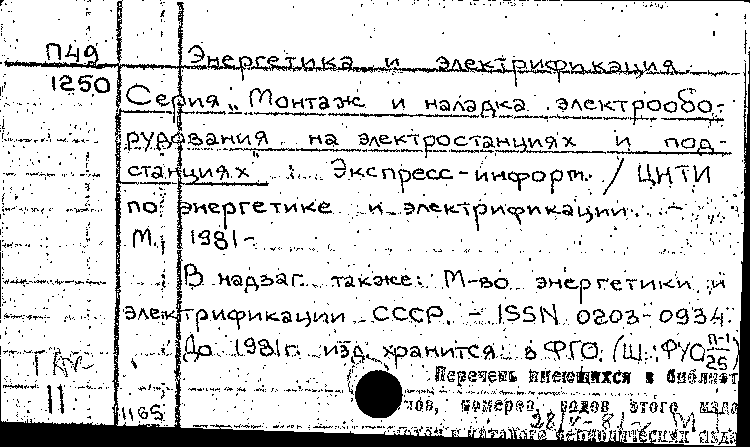 П49
Энергетика и электрификация.
1250
Серия „Монтаж и наладка электрообо-
рудования на электростанциях и под-
станциях" : Экспресс-информ. / ЦНТИ
по энергетике и электрификации. –
М., 1981-
В надзаг. также: М-во энергетики и
электрификации СССР. - ISSN 0203-0934.
До 1981г. изд. хранится в ФГО. (Ш.;ФУО П-1/25)
Перечень имеющихся в библиот
номеров, годов этого изда
II
1165
28/V-81г. М
каталоге периодических изда